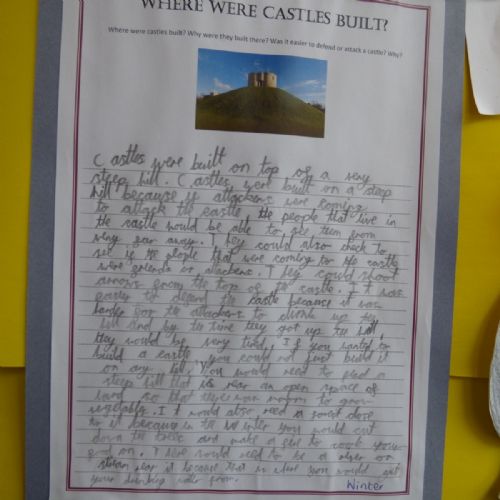 WHERE WERE CASTLES BUILT?
Where were castles built? Why were they built there? Was it easier to defend or attack a castle? Why?
Castles were built on top of a very
steep hill. Castles were built on a steep
hill because if attackers were coming
to attack the castle, the people that live in
the castle would be able to see them from
very far away. They could also check to
see if the people that were coming to the castle
were friends or attackers. They could shoot
arrows from the top of the castle. It was
easier to defend the castle because it was
harder for the attackers to climb up the
hill and by the time they got up the hill,
they would be very tired. If you wanted to
build a castle you could not just build it
on any hill. You would need to find a
steep hill that is near an open space of
land so that there was room to grow
vegetables. It would also need a forest close
to it because in the Winter you would cut
down the trees and make a fire to cook your
food on. There would need to be a river or
stream near it because that is where you would get
your drinking water from.
Winter